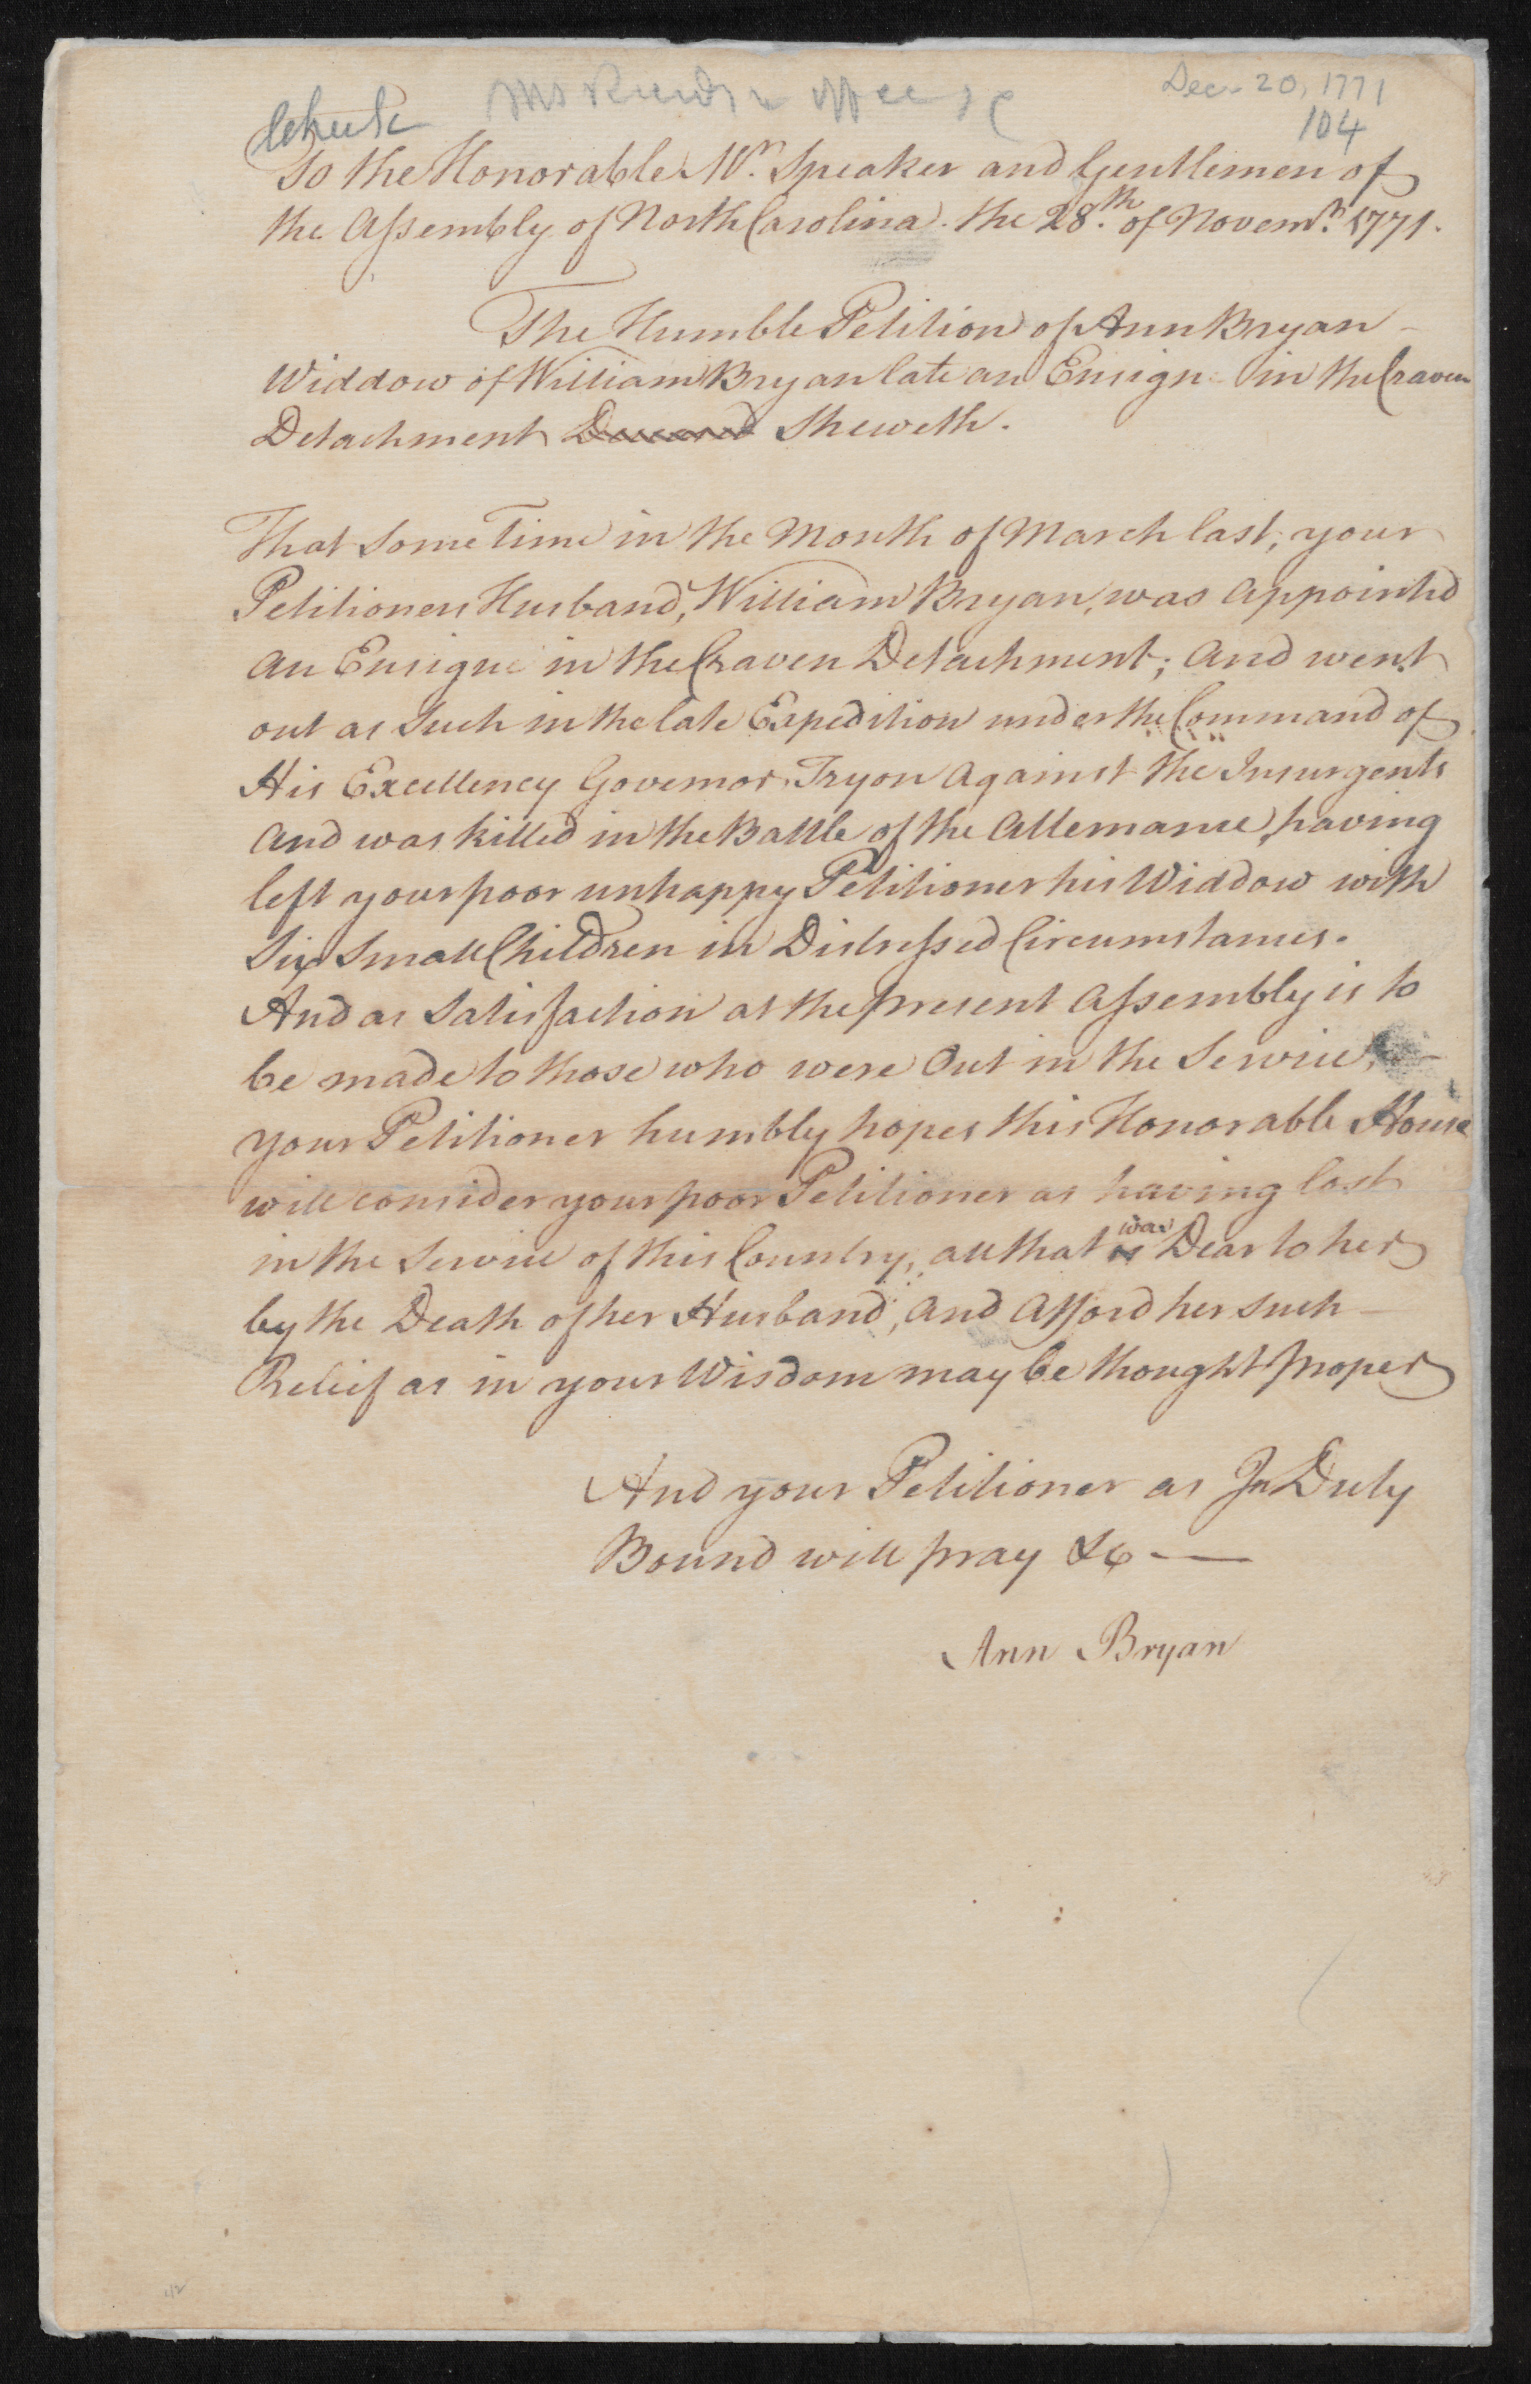 Dec. 20, 1771
104
To the Honorable Mr. Speaker and Gentlemen of
the Assembly of North Carolina. the 28.th of Novemr. 1771.
The Humble Petition of Ann Bryan
Widdow of William Bryan late an Ensign in the Craven
Detachment Sheweth.
That some Time in the Month of March last, your
Petitioners Husband, William Bryan, was appointed
an Ensigne in the Craven Detachment; and went
out as such in the late Expedition under the Command of
His Excellency Governor Tryon against the Insurgents
and was killed in the Battle of the Allemance, having
left your poor unhappy Petitioner his Widdow with
Six Small Children in Distressed Circumstances.
And as Satisfaction at the present Assembly is to
be made to those who were Out in the Service,
your Petitioner humbly hopes this Honorable House
will consider your poor Petitioner as having lost
in the Service of this Country, all that was Dear to her
by the Death of her Husband, and Afford her such
Relief as in your Wisdom may be thought proper
And your Petitioner as In Duty
Bound will pray &c
Ann Bryan